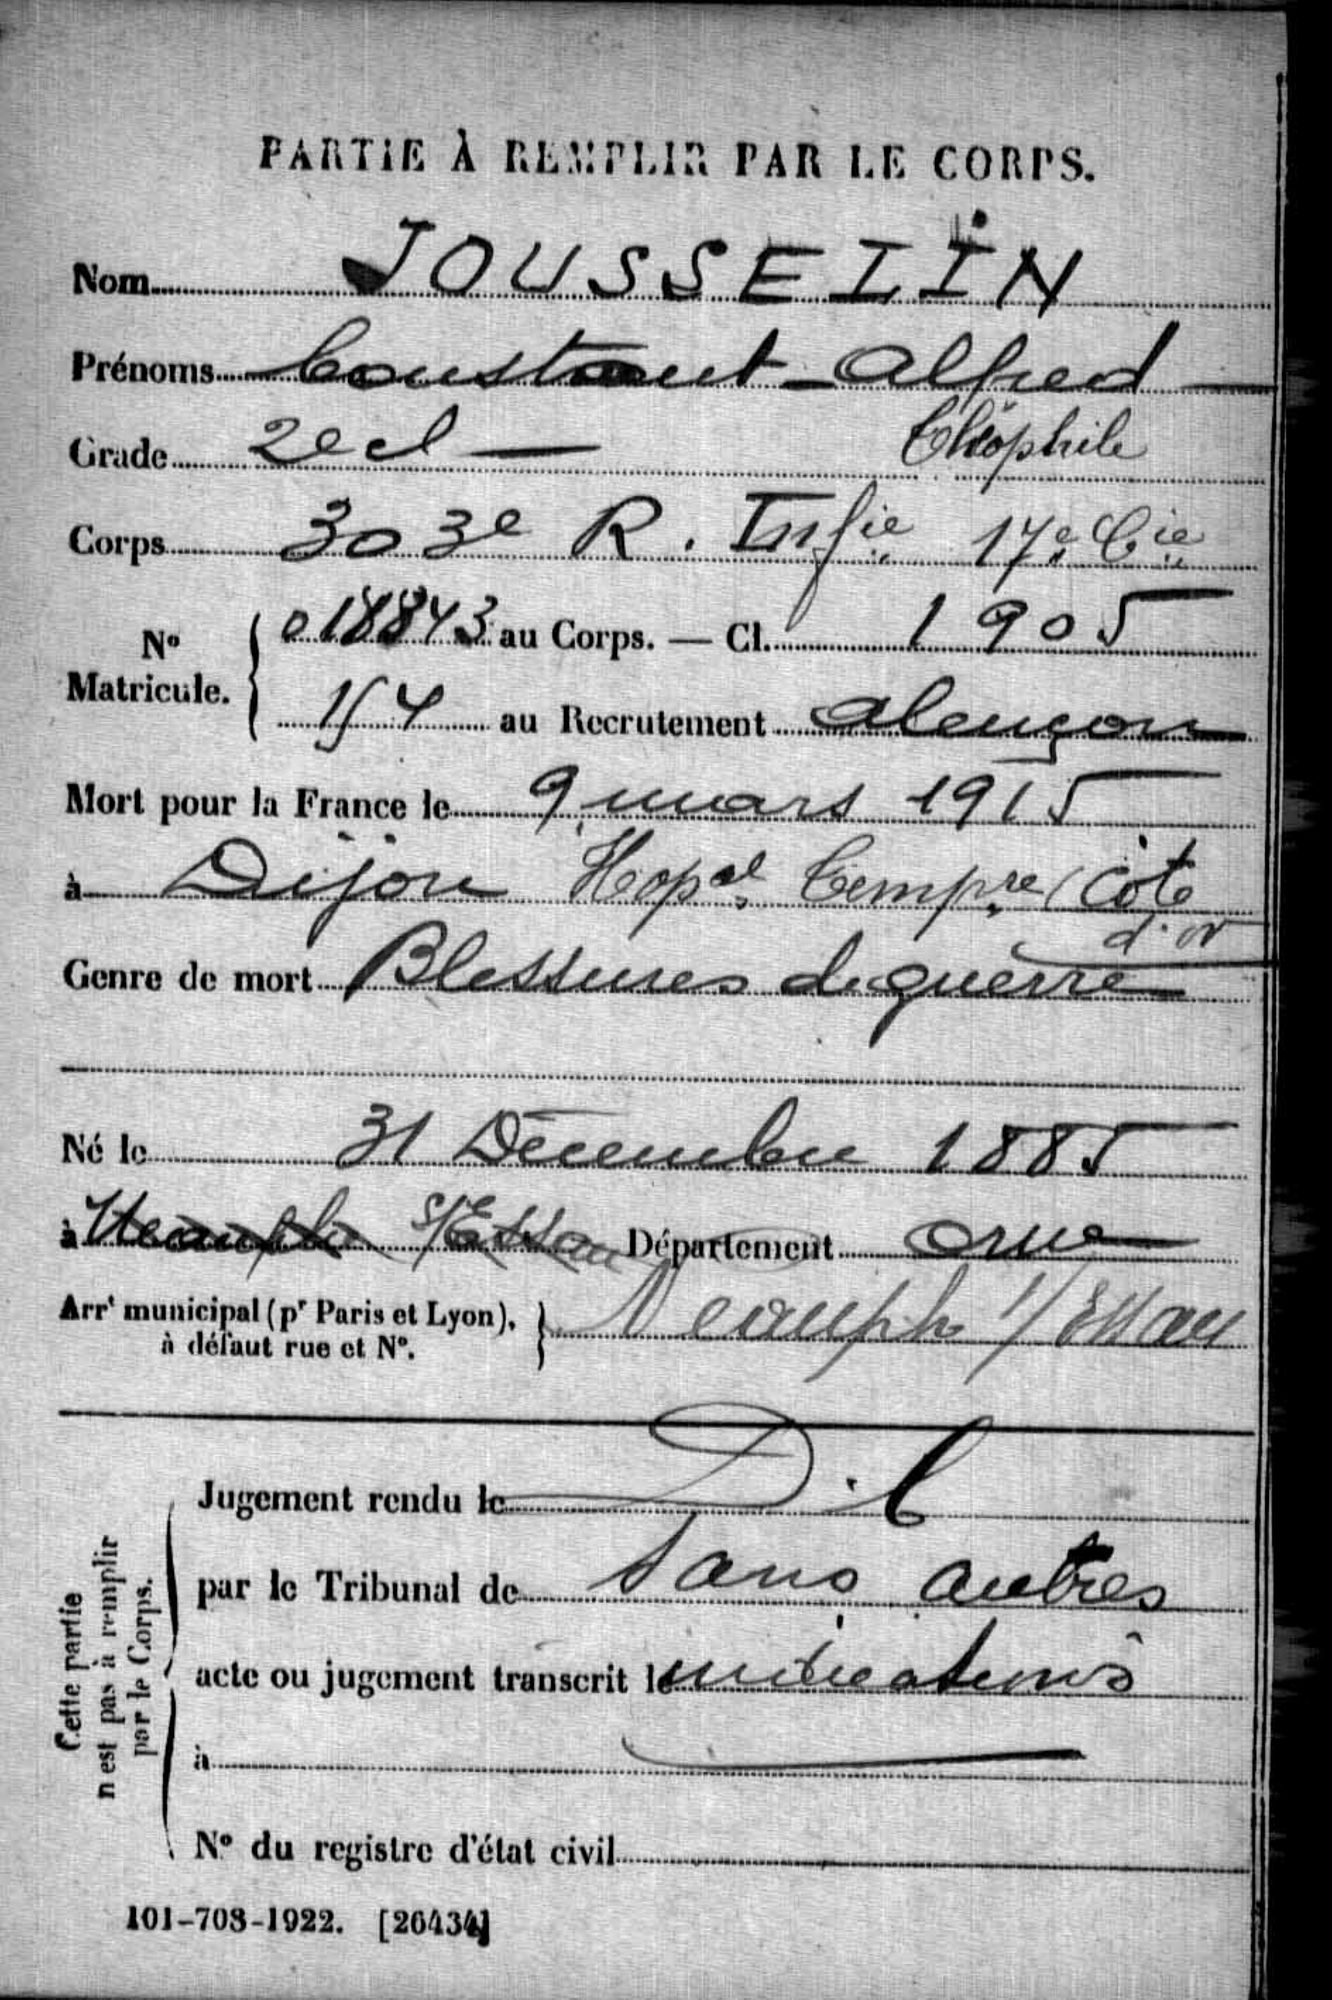 PARTIE À REMPLIR PAR LE CORPS.
Nom JOUSSELIN
Prénoms Constant Alfred
Théophile
Grade 2e cl
Corps 303e R. Infie 17e Cie
No Matricule. 018843 au Corps. — Cl. 1905
154 au Recrutement Alençon
Mort pour la France le 9 mars 1915
à Dijon Hopal Tempre (Côte
d'or
Genre de mort Blessures de guerre
Né le 31 Décembre 1885
à Neauphe s/Essai Département Orne
Arrt municipal (pr Paris et Lyon),
à défaut rue et No.
Neauphe s/Essai
Cette partie
n'est pas à remplir
par le Corps.
Jugement rendu le D.C
par le Tribunal de sans autres
acte ou jugement transcrit le indications
à
No du registre d'état civil
101-708-1922. [26434]